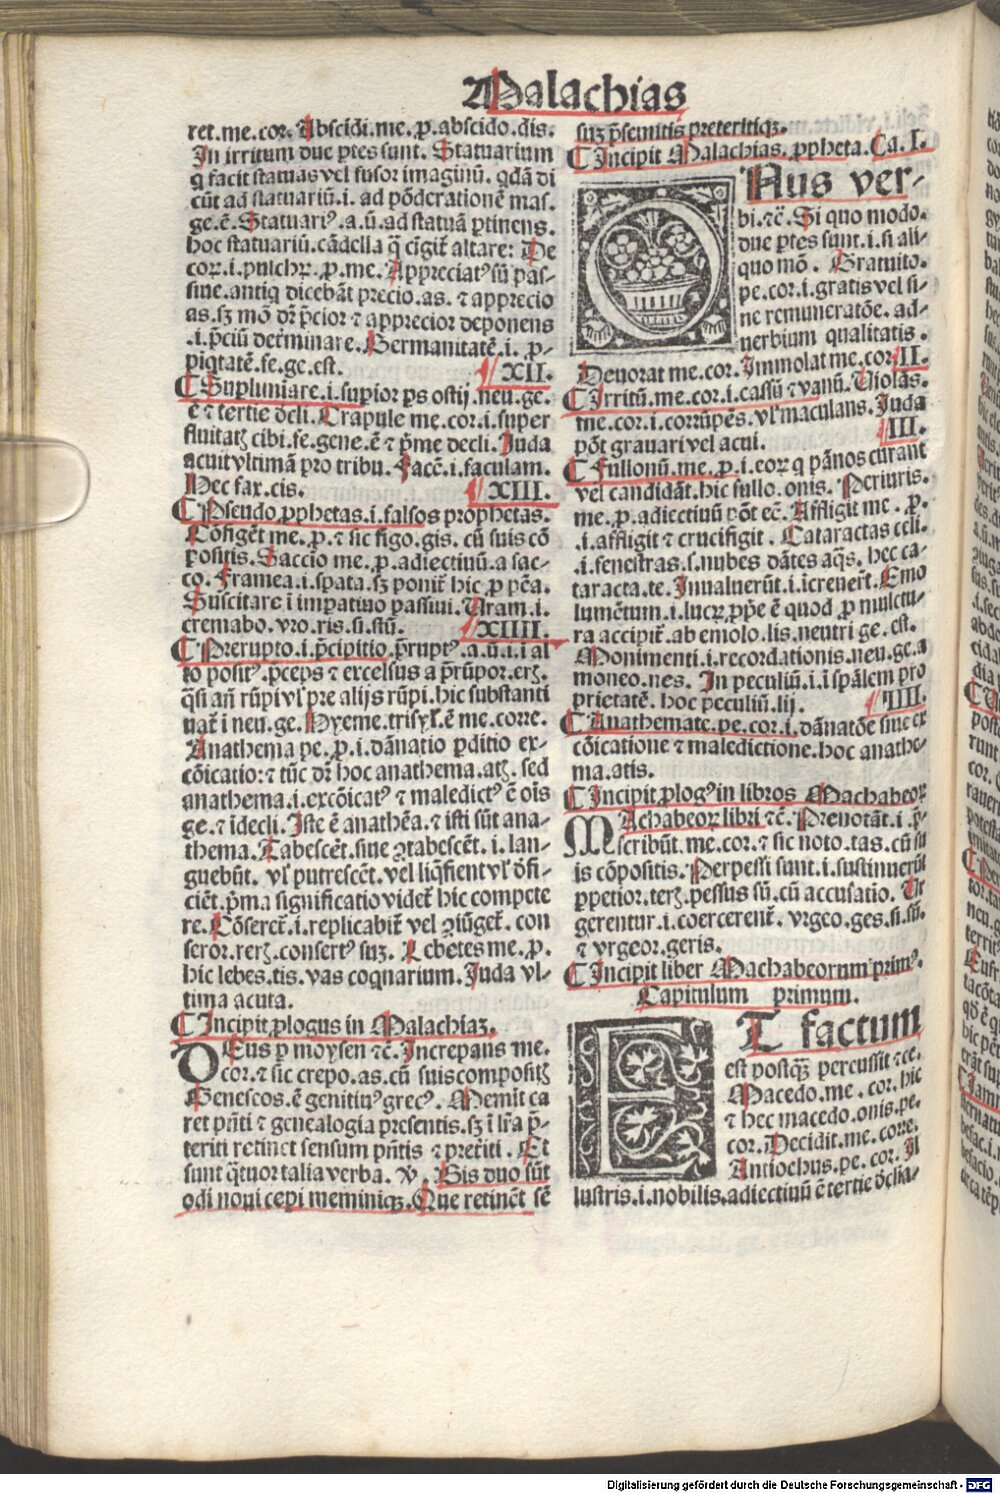 Malachias
ret.me.cor. Abscidi.me.p.abscido.dis.
In irritum due ptes sunt. Statuarium
q facit statuas vel fusor imaginū. qdā di
cūt ad statuariū.i. ad pōderationē mas.
ge.ē. Statuariꝰ.a.ū.ad statuā ptinens.
hoc statuariū.cādella q̄ cīgit̄ altare: De
coꝝ.i.pulchꝝ.p.me. Appreciatꝰ sū pas-
siue.antiq dicebāt precio.as. ⁊ apprecio
as.sꝫ mō dr̄ p̄cior ⁊ apprecior deponens
.i.p̄ciū determinare. Germanitatē.i. p-
piq̄tatē.fe.ge.est. XII.
¶ Supluminare.i.supior ps ostij.neu.ge.
ē ⁊ tertie d̄cli. Crapule me.cor.i.super
fluitatꝫ cibi.fe.gene.ē ⁊ p̄me decli. Juda
acuit vltimā pro tribu. Facē.i.faculam.
Hec fax.cis. XIII.
¶ Pseudo pphetas.i.falsos prophetas.
Cōfigēt me.p. ⁊ sic figo.gis. cū suis cō
positis. Saccio me.p.adiectiuū.a sac-
co. Framea.i.spata.sꝫ ponit̄ hic p pēa.
Suscitare i impatiuo passiui. Uram.i.
cremabo.vro.ris.si.stū. XIIII.
¶ Prerupto.i.p̄cipitio.p̄ruptꝰ.a.ū.i.i al
to positꝰ.p̄ceps ⁊ excelsus a p̄rūpor.erꝫ.
q̄si añ rūpi vl̓ pre alijs rūpi.hic substanti
uat̄ i neu.ge. Hyeme.trisyl̓.ē me.corre.
Anathema pe.p.i.dānatio pditio ex-
cōicatio:⁊ tūc dr̄ hoc anathema.atꝫ. sed
anathema.i.excōicatꝰ ⁊ maledictꝰ ē oīs
ge.⁊ īdecli. Iste ē anathēa.⁊ isti sūt ana-
thema. Tabescēt.siue ꝯtabescēt.i.lan-
guebūt. vl̓ putrescēt.vel liq̄fient vl̓ d̄fi-
ciēt.p̄ma significatio videt̄ hic compete
re. Cōseret̄.i.replicabit̄ vel ꝯiūget̄. con
seror.rerꝫ.consertꝰ suꝫ. Lebetes me.p.
hic lebes.tis.vas coquarium. Juda vl-
tima acuta.
¶ Incipit plogus in Malachiaꝫ.
DEus p moysen ⁊c̄. Increpans me.
cor.⁊ sic crepo.as.cū suis compositꝫ
Geneseos.ē genitiuꝰ grecꝰ. Memit ca
ret p̄nti ⁊ genealogia presentis.sꝫ i lr̄a p-
teriti retinet sensum p̄ntis ⁊ preteriti. Et
sunt q̄tuor talia verba. v. Bis duo sūt
odi noui cepi meminiqꝫ. Que retinēt sē
suꝫ p̄sentis preteritiqꝫ.
¶ Incipit Malachias.ppheta. Ca. I.
ONus ver-
bi.⁊c̄. Si quo modo.
due ptes sunt.i.si ali-
quo mō. Gratuito.
pe.cor.i.gratis vel si-
ne remuneratōe. ad-
uerbium qualitatis.
Deuorat me.cor. Immolat me.cor. II.
¶ Irritū.me.cor.i.cassū ⁊ vanū. Violas.
me.cor.i.corrūpēs. vl̓ maculans. Juda
pōt grauari vel acui. III.
¶ Fullonū.me.p.i.eoꝝ q pānos curant
vel candidāt.hic fullo.onis. Periuris.
me.p.adiectiuū pōt eē. Affligit me.p.
.i.affligit ⁊ crucifigit. Cataractas celi.
.i.fenestras.s.nubes dātes aq̄s. hec ca-
taracta.te. Inualuerūt.i.īcreuer̄t. Emo
lumētum.i.lucꝝ ppe ē quod p mulctu-
ra accipit̄.ab emolo.lis.neutri ge.est.
Monimenti.i.recordationis.neu.ge.a
moneo.nes. In peculiū.i.i spālem pro
prietatē. hoc peculiū.lij. IIII.
¶ Anathemate.pe.cor.i.dānatōe siue ex
cōicatione ⁊ maledictione.hoc anathe-
ma.atis.
¶ Incipit plogꝰ in libros Machabeoꝝ
MAchabeoꝝ libri ⁊c̄. Prenotāt.i.p̄-
scribūt.me.cor.⁊ sic noto.tas.cū su
is cōpositis. Perpessi sunt.i.sustinuerūt
ppetior.terꝫ.pessus sū.cū accusatio. Ut
gerentur.i.coercerent̄. vrgeo.ges.si.sū.
⁊ vrgeor.geris.
¶ Incipit liber Machabeorum primꝰ.
Capitulum primum.
ET factum
est postqꝫ percussit ⁊ce.
Macedo.me.cor.hic
⁊ hec macedo.onis.pe.
cor. Decidit.me.corre.
Antiochus.pe.cor. Il
lustris.i.nobilis.adiectiuū ē tertie d̄clia-
Digitalisierung gefördert durch die Deutsche Forschungsgemeinschaft - DFG